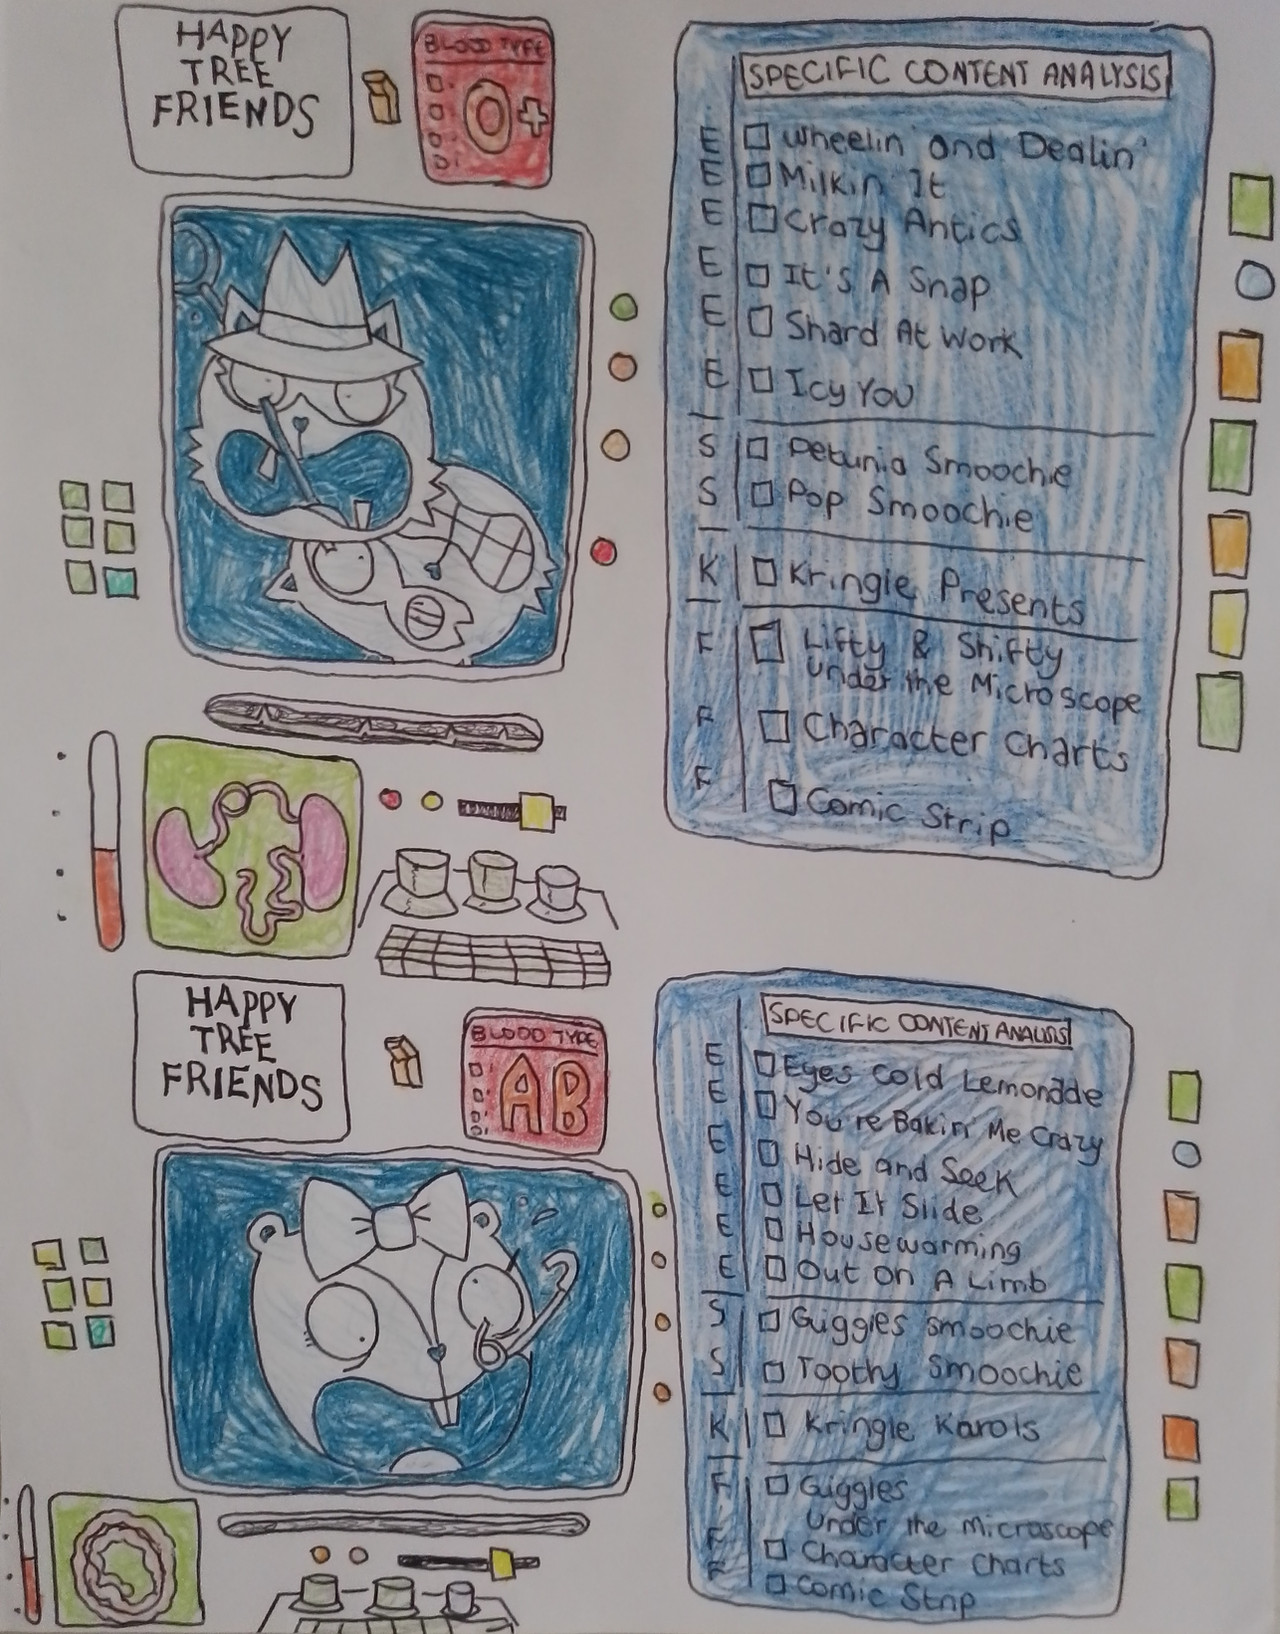 HAPPY
TREE
FRIENDS
BLOOD TYPE
O+
SPECIFIC CONTENT ANALYSIS
E Wheelin' and Dealin'
E Milkin' It
E Crazy Antics
E It's A Snap
E Shard At Work
E Icy You
S Petunia Smoochie
S Pop Smoochie
K Kringle Presents
F Lifty & Shifty
Under the Microscope
F Character Charts
F Comic Strip
HAPPY
TREE
FRIENDS
BLOOD TYPE
AB
SPECIFIC CONTENT ANALYSIS
E Eyes Cold Lemonade
E You're Bakin' Me Crazy
E Hide and Seek
E Let It Slide
E Housewarming
E Out On A Limb
S Giggles Smoochie
S Toothy Smoochie
K Kringle Karols
F Giggles
Under the Microscope
F Character Charts
F Comic Strip